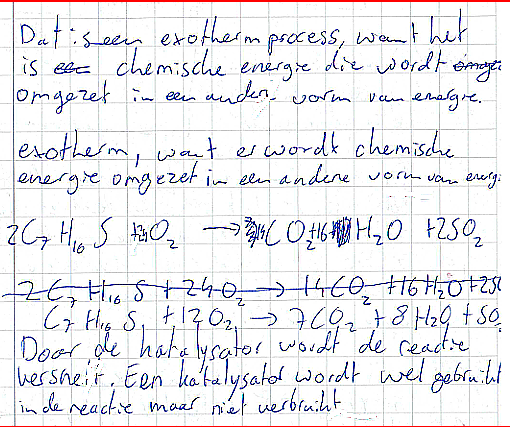 Dat is een exotherm process, want het
is een chemische energie die wordt omge
omgezet in een ander vorm van energie.
exotherm, want er wordt chemische
energie omgezet in een andere vorm van energ.
2C₇H₁₆S +24O₂ → 14CO₂+16H₂O +2SO₂
2C₇H₁₆S + 24O₂ → 14CO₂ +16H₂O +2S
C₇H₁₆S + 12O₂ → 7CO₂ + 8H₂O + SO₂
Door de katalysator wordt de reactie
versnelt. Een katalysator wordt wel gebruikt
in de reactie maar niet verbruikt